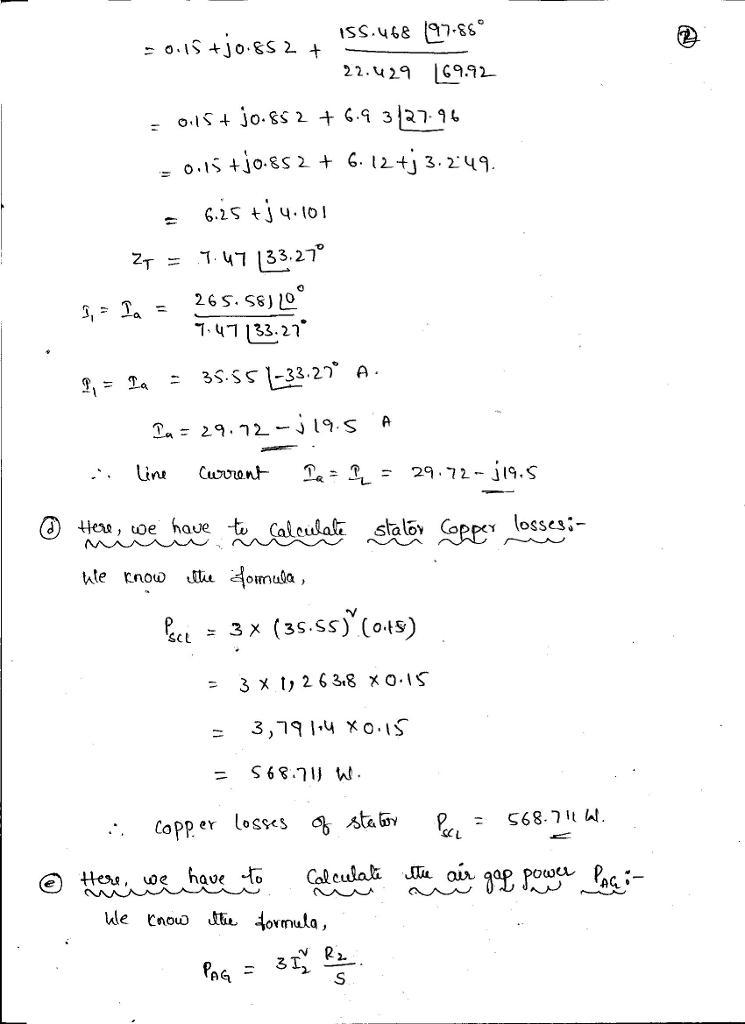 ②
= 0.15 + j0.852 + 155.468 ∠97.88° / 22.429 ∠69.92
= 0.15 + j0.852 + 6.93 ∠27.96
= 0.15 + j0.852 + 6.12 + j3.249.
= 6.25 + j4.101
Z_T = 7.47 ∠33.27°
I₁ = I_a = 265.581 ∠0° / 7.47 ∠33.27°
I₁ = I_a = 35.55 ∠-33.27° A.
I_a = 29.72 - j19.5 A
∴ line current I_a = I_L = 29.72 - j19.5
ⓓ Here, we have to calculate stator copper losses:-
We know the formula,
P_SCL = 3 × (35.55)² (0.15)
= 3 × 1,263.8 × 0.15
= 3,791.4 × 0.15
= 568.711 W.
∴ copper losses of stator P_SCL = 568.711 W.
ⓔ Here, we have to Calculate the air gap power P_AG :-
We know the formula,
P_AG = 3 I₂² R₂ / S.